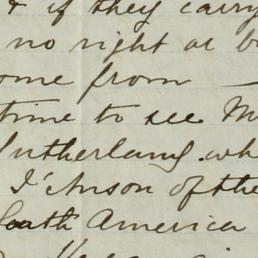 & if they carry
no right or b
ome from
time to see M
utherland wh
I'Anson of the
South America